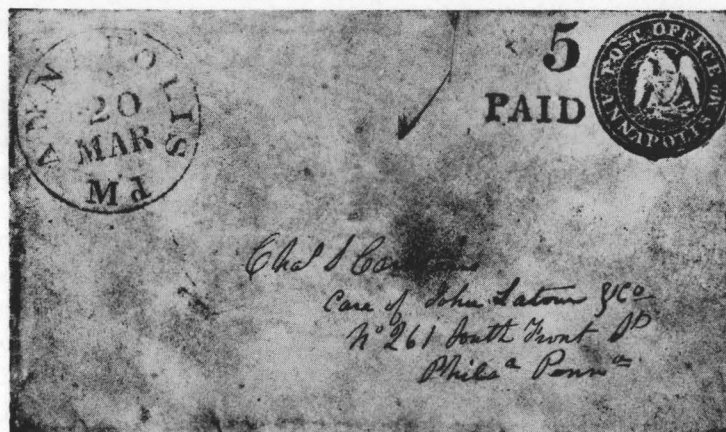 ANNAPOLIS
20
MAR
Md
5
PAID
POST OFFICE OF ANNAPOLIS
Chas S
Care of John Latour & Co
No 261 South Front St
Philaa Penna